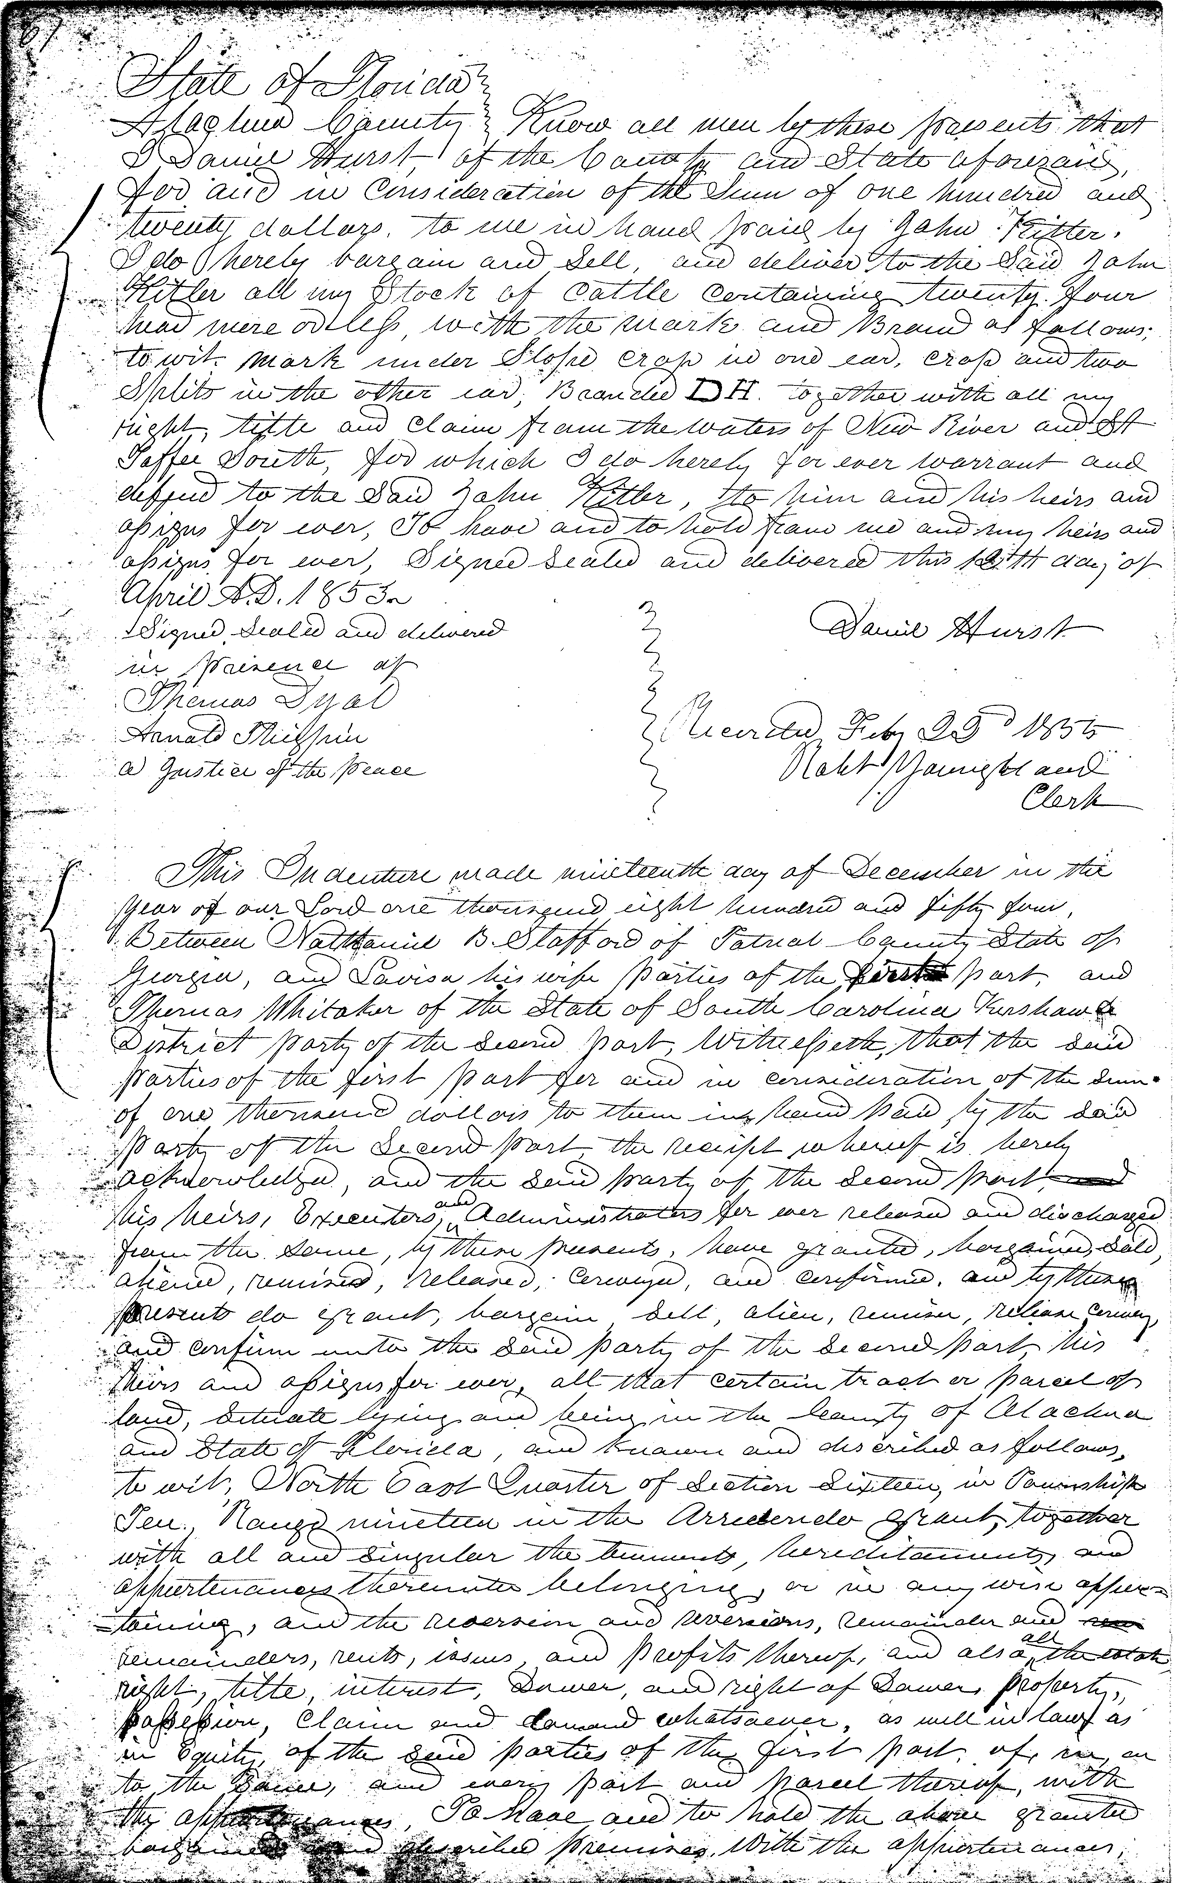 67
State of Florida
Alachua County Know all men by these presents that
I Daniel Hurst, of the County and State aforesaid,
for and in Consideration of the Sum of one hundred and
twenty dollars, to me in hand paid by John Kitler.
I do hereby bargain and Sell, and deliver to the Said John
Kitler all my Stock of Cattle Containing twenty four
head more or less, with the mark and Brand as follows;
to wit. mark under Slope crop in one ear, crop and two
Splits in the other ear, Branded DH. together with all my
right, title and claim from the waters of New River and St
Taffee South, for which I do hereby for ever warrant and
defend to the Said John Kitler, to him and his heirs and
assigns for ever, To have and to hold from me and my heirs and
assigns for ever, Signed Sealed and delivered this 12th day of
April A.D. 1853
Signed Sealed and delivered
in presence of
Daniel Hurst
Thomas Dyal
Arnald Thigpin
a Justice of the Peace
Recorded Feb 23d 1855
Robt Youngbland
Clerk
This Indenture made nineteenth day of December in the
year of our Lord one thousand eight hundred and fifty four,
Between Nathaniel B. Stafford of Patnal County State of
Georgia, and Lavisa his wife parties of the first part, and
Thomas Whitaker of the State of South Carolina Kershaw
District party of the Second part, Witnesseth, that the said
parties of the first part for and in consideration of the Sum
of one thousand dollars to them in hand paid by the Said
party of the Second part the receipt whereof is hereby
acknowledged, and the said party of the Second part and
his heirs, Executors, and Administrators for ever released and discharged
from the Same, by these presents, have granted, bargained, Sold,
aliened, remised, released, conveyed, and confirmed, and by these
presents do grant, bargain, Sell, alien, remise, release convey,
and confirm unto the Said party of the Second part, his
heirs and assigns for ever, all that certain tract or parcel of
land, Situate lying and being in the County of Alachua
and State of Florida, and known and described as follows,
to wit, North East Quarter of Section Sixteen, in Township
Ten, Range nineteen in the Arredendo Grant, together
with all and Singular the tenements, hereditaments, and
appurtenances thereunto belonging, or in any wise apper=
=taining, and the reversion and reversions, remainder and
remainders, rents, issues, and profits thereof, and also all the estate
right, title, interest, Dower, and right of Dower, property,
possession, Claim and demand whatsoever, as well in law as
in Equity, of the Said parties of the first part, of, in, or
to the Same, and every part and parcel thereof, with
the appurtenances, To have and to hold the above granted
bargained and described premises, With the appurtenances,